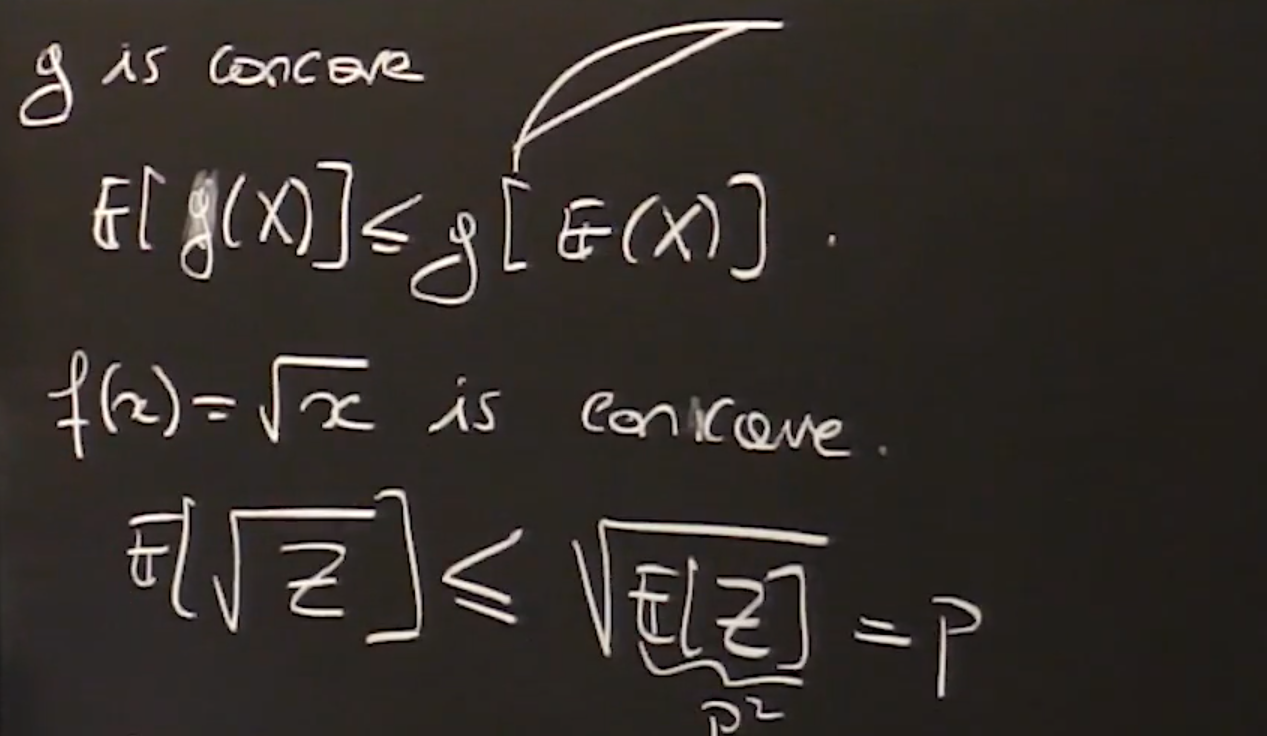 g is concave
𝔼[g(X)] ≤ g[𝔼(X)].
f(x) = √x is concave.
𝔼[√Z] ≤ √𝔼[Z] = P
P²